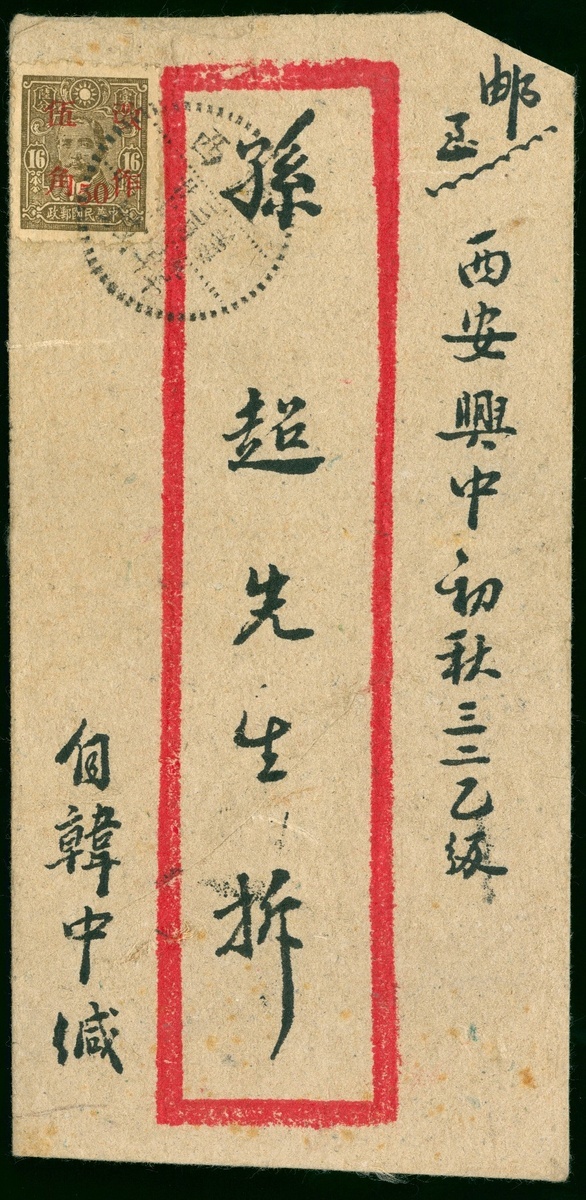 邮
西安興中初秋三二乙級
孫超先生拆
自韓中緘
改作
伍角
50
16 16
中華民國郵政
西